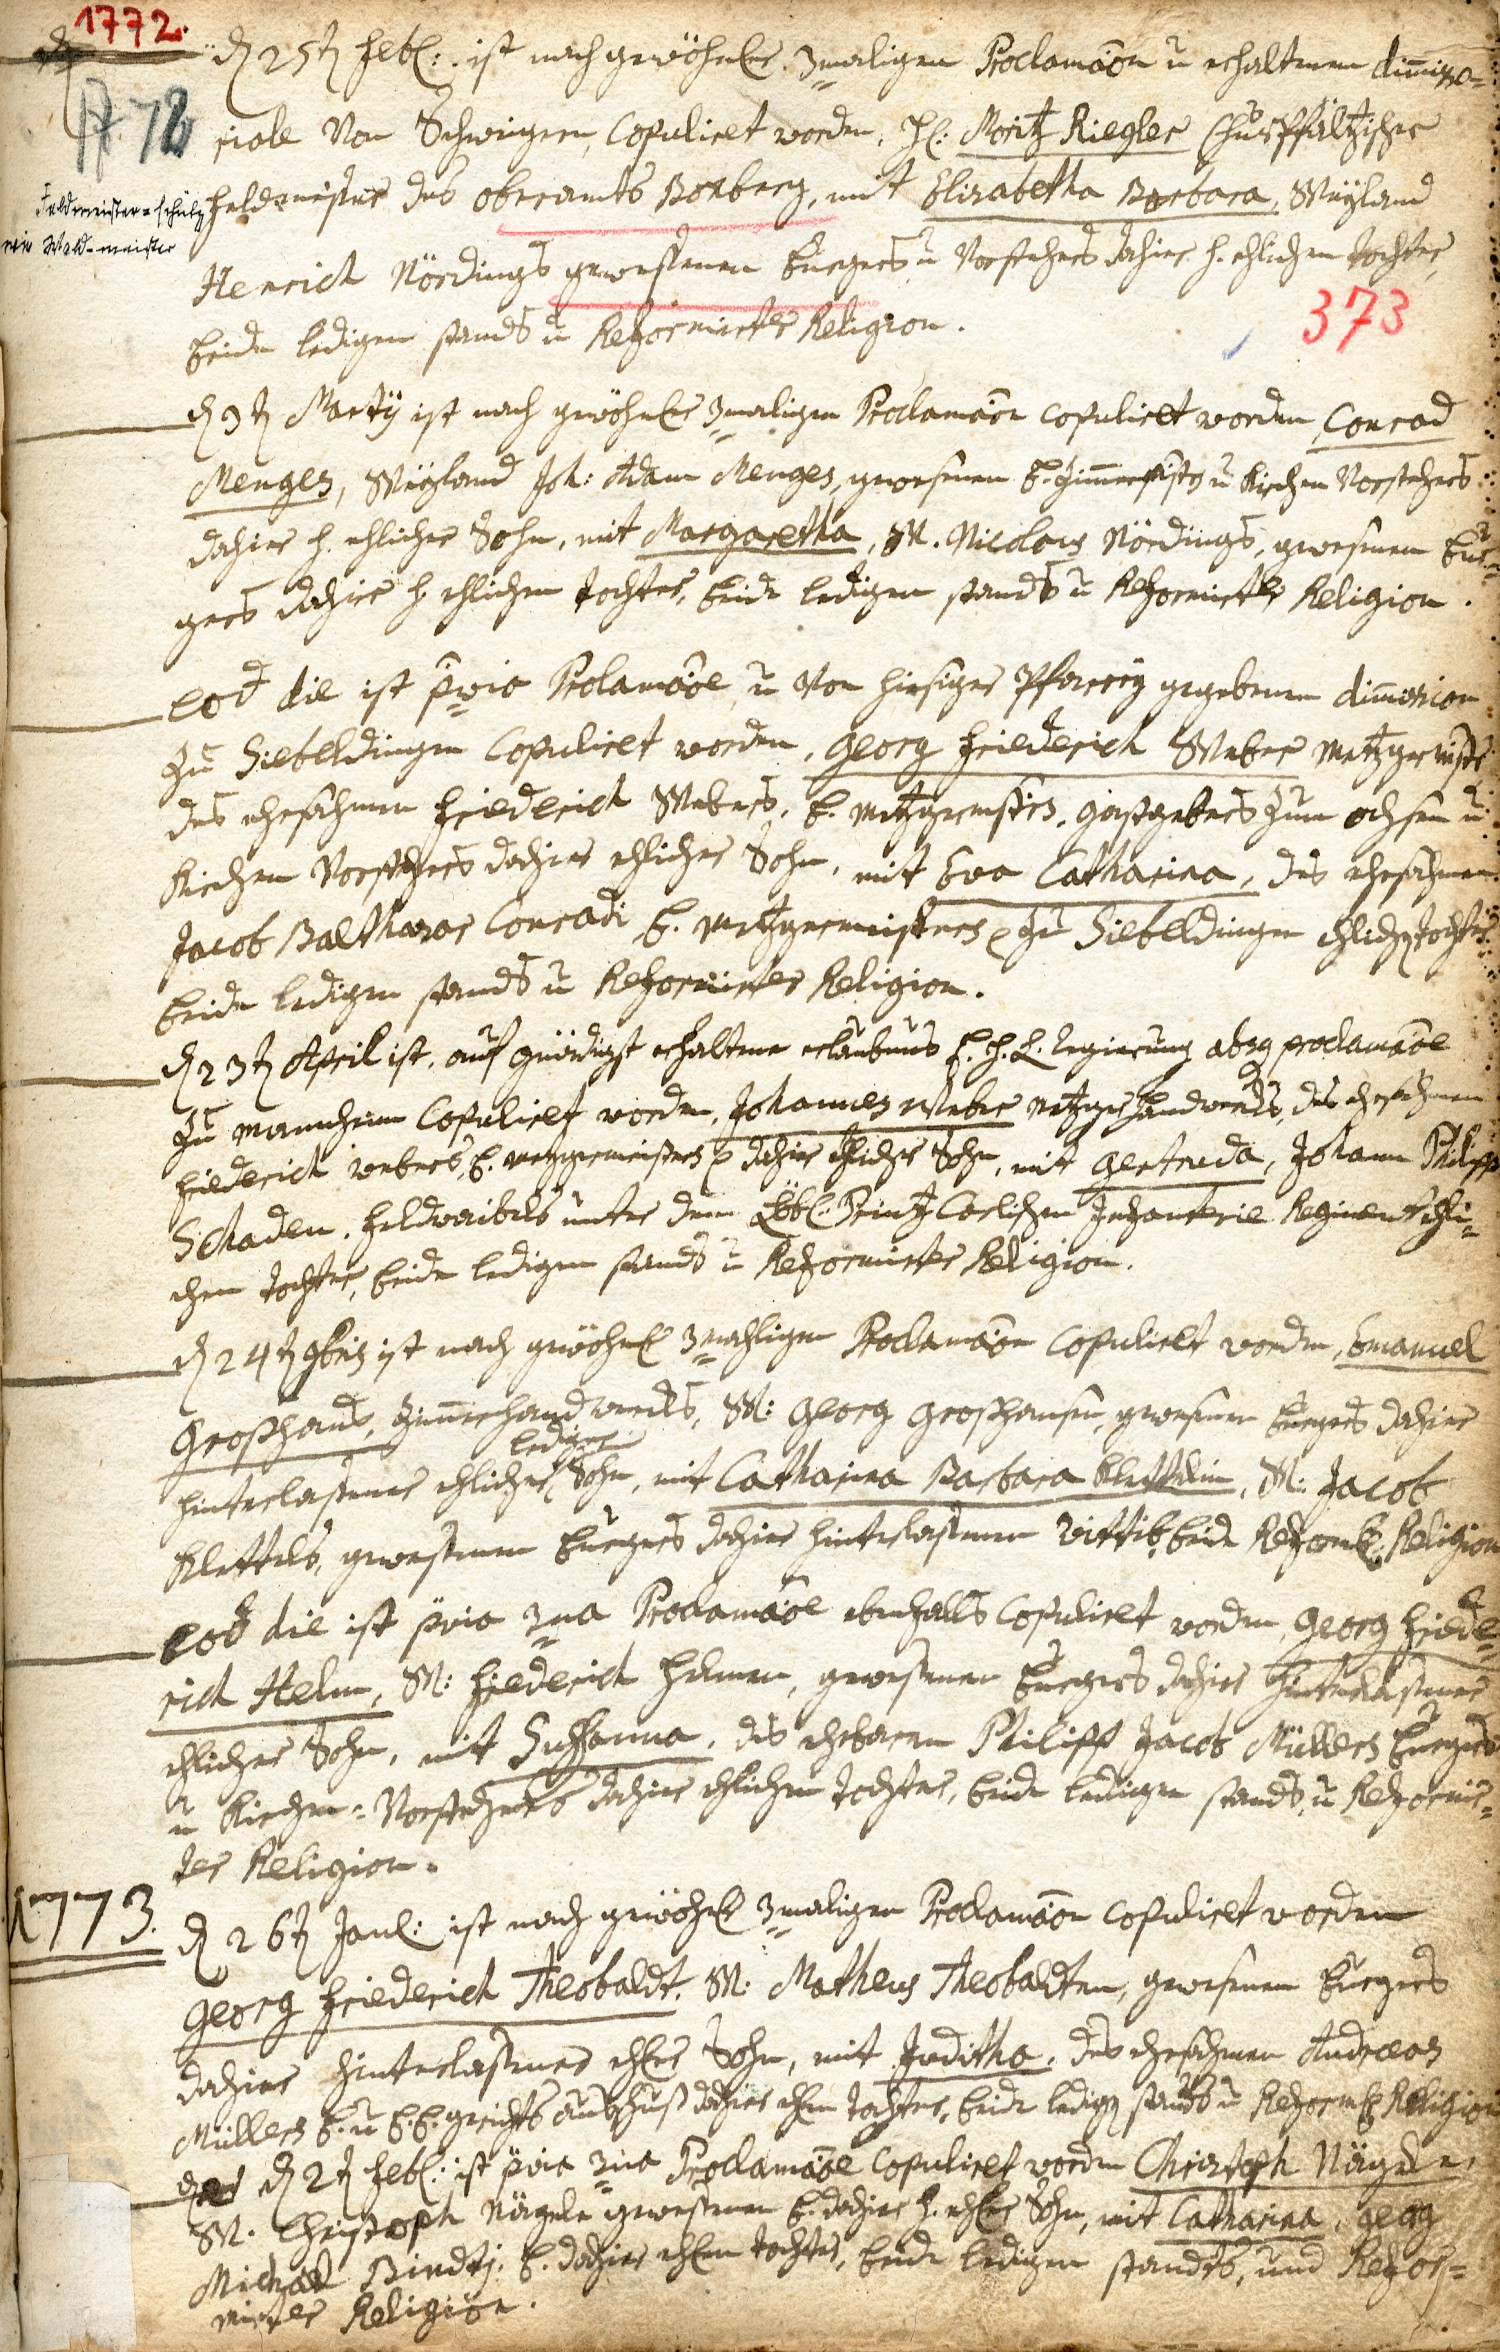 1772.
d 25t Febr: ist nach gewöhnlr. 3maligen Proclamaõn u erhaltenem dimisso=
riale Von Schwigern, Copuliret worden, Hr: Moritz Riegler ChurPfältzischer
Feldmeister des oberamts Boxberg, mit Elisabetha Barbara, Weyland
Feldmeister = schultz
wie Wald-meister
Henrich Nördings gewesenen burgers u Vorstehers dahier h. ehlichen tochter,
beide ledigen stands u Reformirter Religion.
373
d 3t Martÿ ist nach gewöhnlr 3maligen Proclamaõn copuliret worden Conrad
Menges, Weyland Joh: Adam Menges, gewesenen b. Zimmermstrs u Kirchen Vorstehers
dahier h. ehlicher Sohn, mit Margaretha, W. Nicolaus Nördings, gewesenen bur=
gers dahier h. ehlichen tochter, beide ledigen stands u Reformirter Religion.
eod die ist pvia Prolamaõe u Von hiesiger Pfarrey gegebenen dimission
zu Siebeldingen Copuliret worden, Georg Friederich Weber Metzgermstr
des ehrsahmen Friederich Webers, b. Metzgermstrs, gastgebers zum ochsen u
Kirchen Vorstehers dahier ehlicher Sohn, mit Eva Catharina, des ehrsahmen
Jacob Balthasar Conradi b. Metzgermeisters zu Siebeldingen ehlichen tochter
beide ledigen stands u Reformirter Religion.
d 23t April ist, auf gnädigst erhaltene erlaubnus h. Regierung absq proclamaõe
zu Mannheim Copuliret worden, Johannes Weber Metzger handwercks, des ehrsahmen
Friederich webers, b. Metzgermeisters dahier ehlicher Sohn, mit Gertruda, Johann Philipp
Schaden, Feldwaibels unter dem Löbl. Printz Carlischen Infanterie Regiment ehli=
chen tochter, beide ledigen stands u Reformirter Religion.
d 24t 9bris ist nach gewöhnl 3mahligen Proclamaõn Copuliret worden, Emanuel
Großhans, Zimmerhandwercks, W: Georg Großhansen, gewesenen burgers dahier
lediger
hinterlassener ehlicher Sohn, mit Catharina Barbara Klettelin, W: Jacob
Klettels, gewesenen burgers dahier hinterlassenen Wittib, beide Reform. Religion
eod die ist pvia 3na Proclamaõe ebenfalls Copuliret worden, Georg Friede=
rich Helm, W: Friederich Helmen, gewesenen burgers dahier hinterlassener
ehlicher Sohn, mit Susanna, des ehrbaren Philipp Jacob Müllers burgers
u Kirchen=Vorstehers dahier ehlichen tochter, beide ledigen stands, u Reformir=
ter Religion.
1773.
d 26t Janr: ist nach gewöhnl 3maligen Proclamaõn copuliret worden
Georg Friederich Theobaldt, W: Matheus Theobaldten, gewesenen burgers
dahier hinterlassener ehlr Sohn, mit Juditha, des ehrsahmen Andreas
Müllers b. u gerichts ausschuß dahier ehlen tochter, beide ledigen stands u Reform. Religion
d 2t Febr: ist pvia 3na Proclamaõe copuliret worden Christoph Nägele,
W. Christoph Nägele gewesenen b. dahier h. ehlr Sohn, mit Catharina, Georg
Michael b. dahier ehlen tochter, beide ledigen standts, und Refor=
mirter Religion.